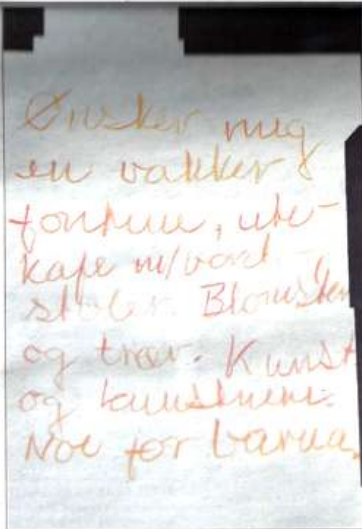 Ønsker meg
en vakker
fontene, ute-
kafe m/bord -
stoler. Blomster
og trær. Kunst
og
Noe for barna.